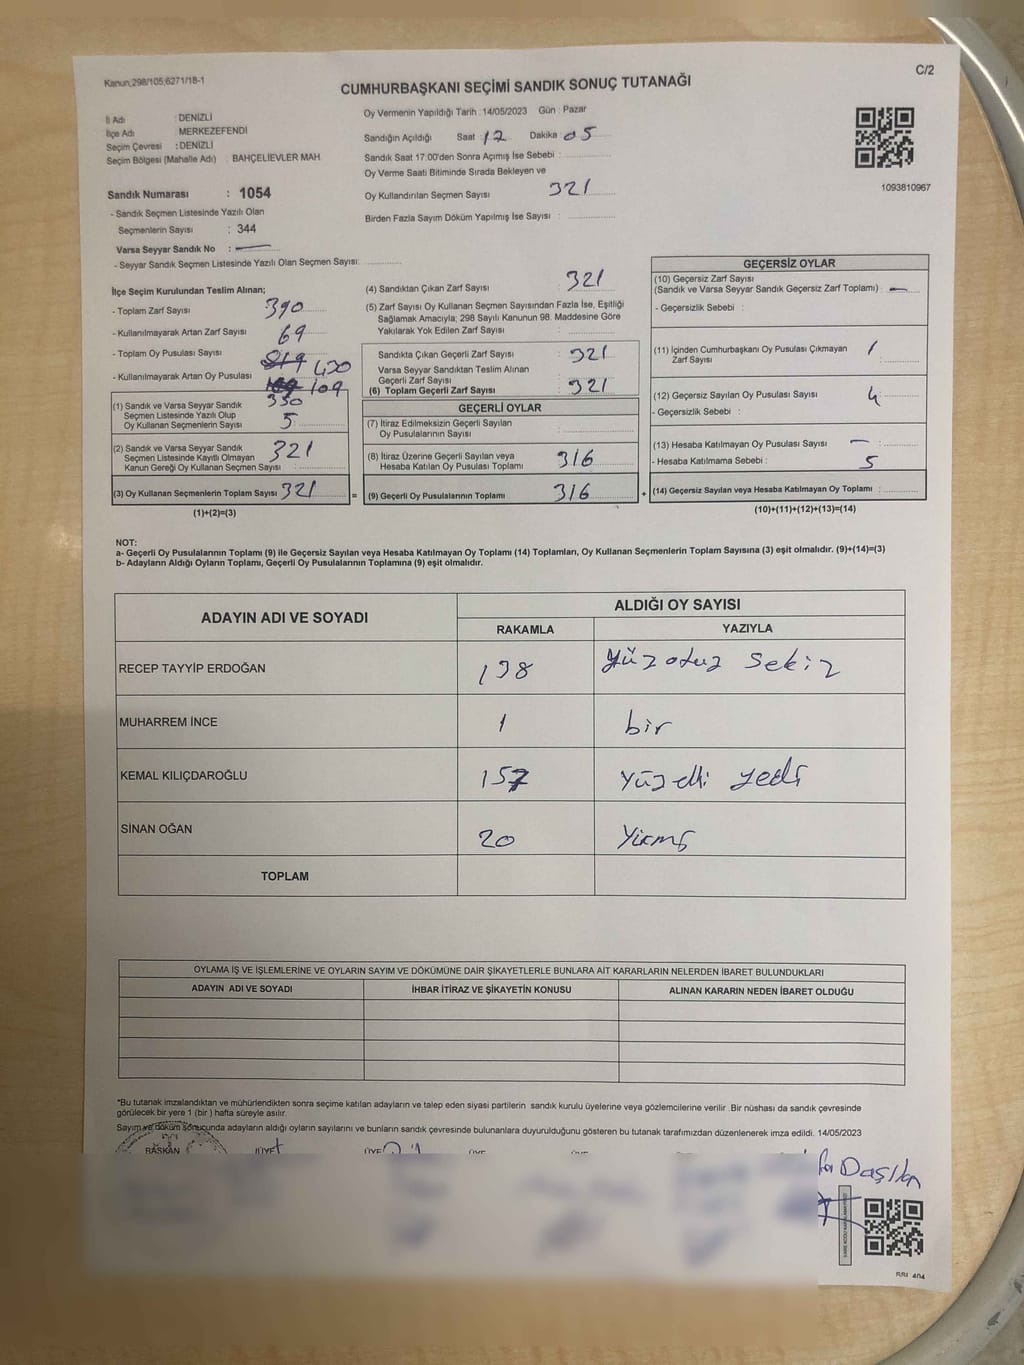 Kanun;298/105;6271/18-1
C/2
CUMHURBAŞKANI SEÇİMİ SANDIK SONUÇ TUTANAĞI
İl Adı : DENİZLİ
İlçe Adı : MERKEZEFENDİ
Seçim Çevresi : DENİZLİ
Seçim Bölgesi (Mahalle Adı) : BAHÇELİEVLER MAH.
Sandık Numarası : 1054
- Sandık Seçmen Listesinde Yazılı Olan
Seçmenlerin Sayısı : 344
Varsa Seyyar Sandık No : —
- Seyyar Sandık Seçmen Listesinde Yazılı Olan Seçmen Sayısı:
Oy Vermenin Yapıldığı Tarih : 14/05/2023 Gün : Pazar
Sandığın Açıldığı Saat : 17 Dakika 05
Sandık Saat 17:00'den Sonra Açımış İse Sebebi :
Oy Verme Saati Bitiminde Sırada Bekleyen ve
Oy Kullandırılan Seçmen Sayısı 321
Birden Fazla Sayım Döküm Yapılmış İse Sayısı :
1093810967
İlçe Seçim Kurulundan Teslim Alınan;
- Toplam Zarf Sayısı 390
- Kullanılmayarak Artan Zarf Sayısı 69
- Toplam Oy Pusulası Sayısı 430
- Kullanılmayarak Artan Oy Pusulası 109
330
(1) Sandık ve Varsa Seyyar Sandık
Seçmen Listesinde Yazılı Olup
Oy Kullanan Seçmenlerin Sayısı 5
(2) Sandık ve Varsa Seyyar Sandık
Seçmen Listesinde Kayıtlı Olmayan
Kanun Gereği Oy Kullanan Seçmen Sayısı : 321
(3) Oy Kullanan Seçmenlerin Toplam Sayısı 321
(1)+(2)=(3)
(4) Sandıktan Çıkan Zarf Sayısı 321
(5) Zarf Sayısı Oy Kullanan Seçmen Sayısından Fazla İse, Eşitliği
Sağlamak Amacıyla; 298 Sayılı Kanunun 98. Maddesine Göre
Yakılarak Yok Edilen Zarf Sayısı :
Sandıkta Çıkan Geçerli Zarf Sayısı : 321
Varsa Seyyar Sandıktan Teslim Alınan
Geçerli Zarf Sayısı
(6) Toplam Geçerli Zarf Sayısı : 321
GEÇERLİ OYLAR
(7) İtiraz Edilmeksizin Geçerli Sayılan
Oy Pusulalarının Sayısı
(8) İtiraz Üzerine Geçerli Sayılan veya
Hesaba Katılan Oy Pusulası Toplamı 316
= (9) Geçerli Oy Pusulalarının Toplamı 316
GEÇERSİZ OYLAR
(10) Geçersiz Zarf Sayısı
(Sandık ve Varsa Seyyar Sandık Geçersiz Zarf Toplamı) : —
- Geçersizlik Sebebi :
(11) İçinden Cumhurbaşkanı Oy Pusulası Çıkmayan
Zarf Sayısı 1
(12) Geçersiz Sayılan Oy Pusulası Sayısı 4
- Geçersizlik Sebebi :
(13) Hesaba Katılmayan Oy Pusulası Sayısı —
- Hesaba Katılmama Sebebi : 5
+ (14) Geçersiz Sayılan veya Hesaba Katılmayan Oy Toplamı :
(10)+(11)+(12)+(13)=(14)
NOT:
a- Geçerli Oy Pusulalarının Toplamı (9) ile Geçersiz Sayılan veya Hesaba Katılmayan Oy Toplamı (14) Toplamları, Oy Kullanan Seçmenlerin Toplam Sayısına (3) eşit olmalıdır. (9)+(14)=(3)
b- Adayların Aldığı Oyların Toplamı, Geçerli Oy Pusulalarının Toplamına (9) eşit olmalıdır.
ADAYIN ADI VE SOYADI ALDIĞI OY SAYISI
RAKAMLA YAZIYLA
RECEP TAYYİP ERDOĞAN 138 yüzotuz sekiz
MUHARREM İNCE 1 bir
KEMAL KILIÇDAROĞLU 157 yüzelli yedi
SİNAN OĞAN 20 Yirmi
TOPLAM
OYLAMA İŞ VE İŞLEMLERİNE VE OYLARIN SAYIM VE DÖKÜMÜNE DAİR ŞİKAYETLERLE BUNLARA AİT KARARLARIN NELERDEN İBARET BULUNDUKLARI
ADAYIN ADI VE SOYADI İHBAR İTİRAZ VE ŞİKAYETİN KONUSU ALINAN KARARIN NEDEN İBARET OLDUĞU
*Bu tutanak imzalandıktan ve mühürlendikten sonra seçime katılan adayların ve talep eden siyasi partilerin sandık kurulu üyelerine veya gözlemcilerine verilir. Bir nüshası da sandık çevresinde
görülecek bir yere 1 (bir) hafta süreyle asılır.
Sayım ve döküm sonucunda adayların aldığı oyların sayılarını ve bunların sandık çevresinde bulunanlara duyurulduğunu gösteren bu tutanak tarafımızdan düzenlenerek imza edildi. 14/05/2023
BAŞKAN ÜYE ÜYE